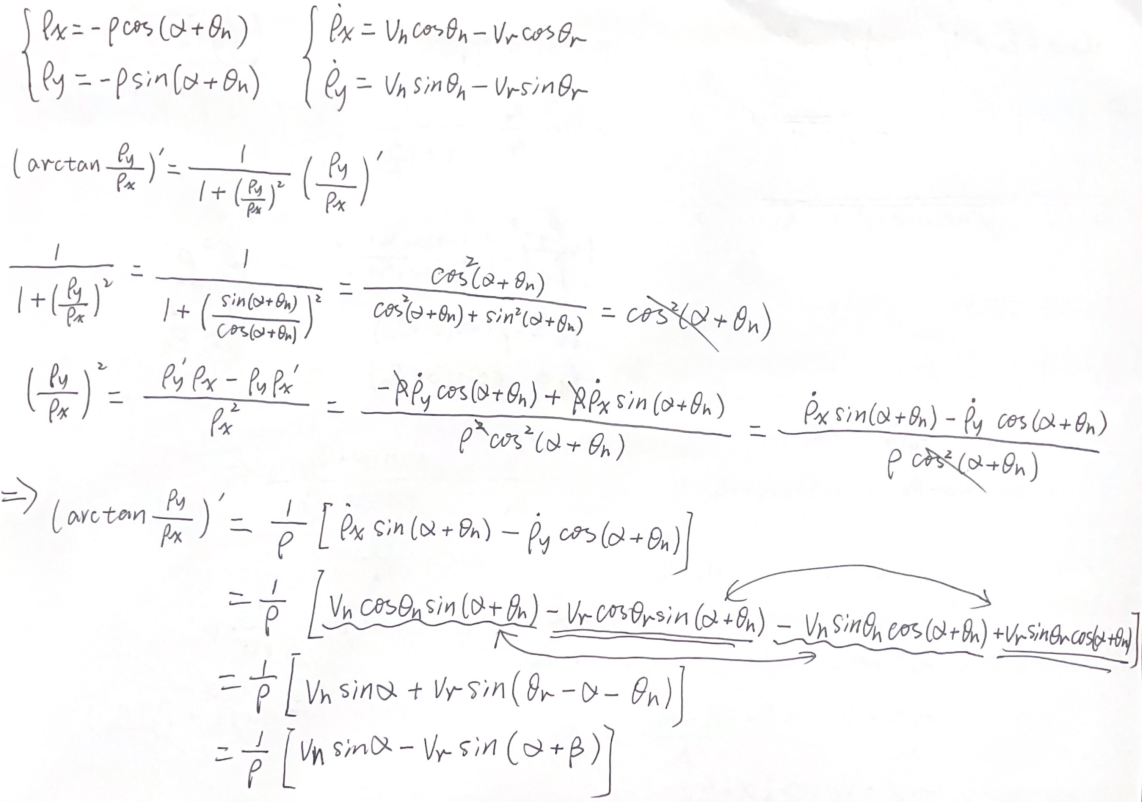 {ρx = -ρcos(α+θn)   { ρ̇x = Vn cosθn - Vr cosθr
{ρy = -ρsin(α+θn)   { ρ̇y = Vn sinθn - Vr sinθr
(arctan ρy/ρx)' = 1/(1+(ρy/ρx)²) (ρy/ρx)'
1/(1+(ρy/ρx)²) = 1/(1+(sin(α+θn)/cos(α+θn))²) = cos²(α+θn)/(cos²(α+θn)+sin²(α+θn)) = cos²(α+θn)
(ρy/ρx)² = (ρy'ρx - ρyρx')/ρx² = (-ρρ̇y cos(α+θn) + ρρ̇x sin(α+θn))/(ρ² cos²(α+θn)) = (ρ̇x sin(α+θn) - ρ̇y cos(α+θn))/(ρ cos²(α+θn))
=> (arctan ρy/ρx)' = 1/ρ [ρ̇x sin(α+θn) - ρ̇y cos(α+θn)]
= 1/ρ [Vn cosθn sin(α+θn) - Vr cosθr sin(α+θn) - Vn sinθn cos(α+θn) + Vr sinθr cos(α+θn)]
= 1/ρ [Vn sinα + Vr sin(θr - α - θn)]
= 1/ρ [Vn sinα - Vr sin(α+β)]